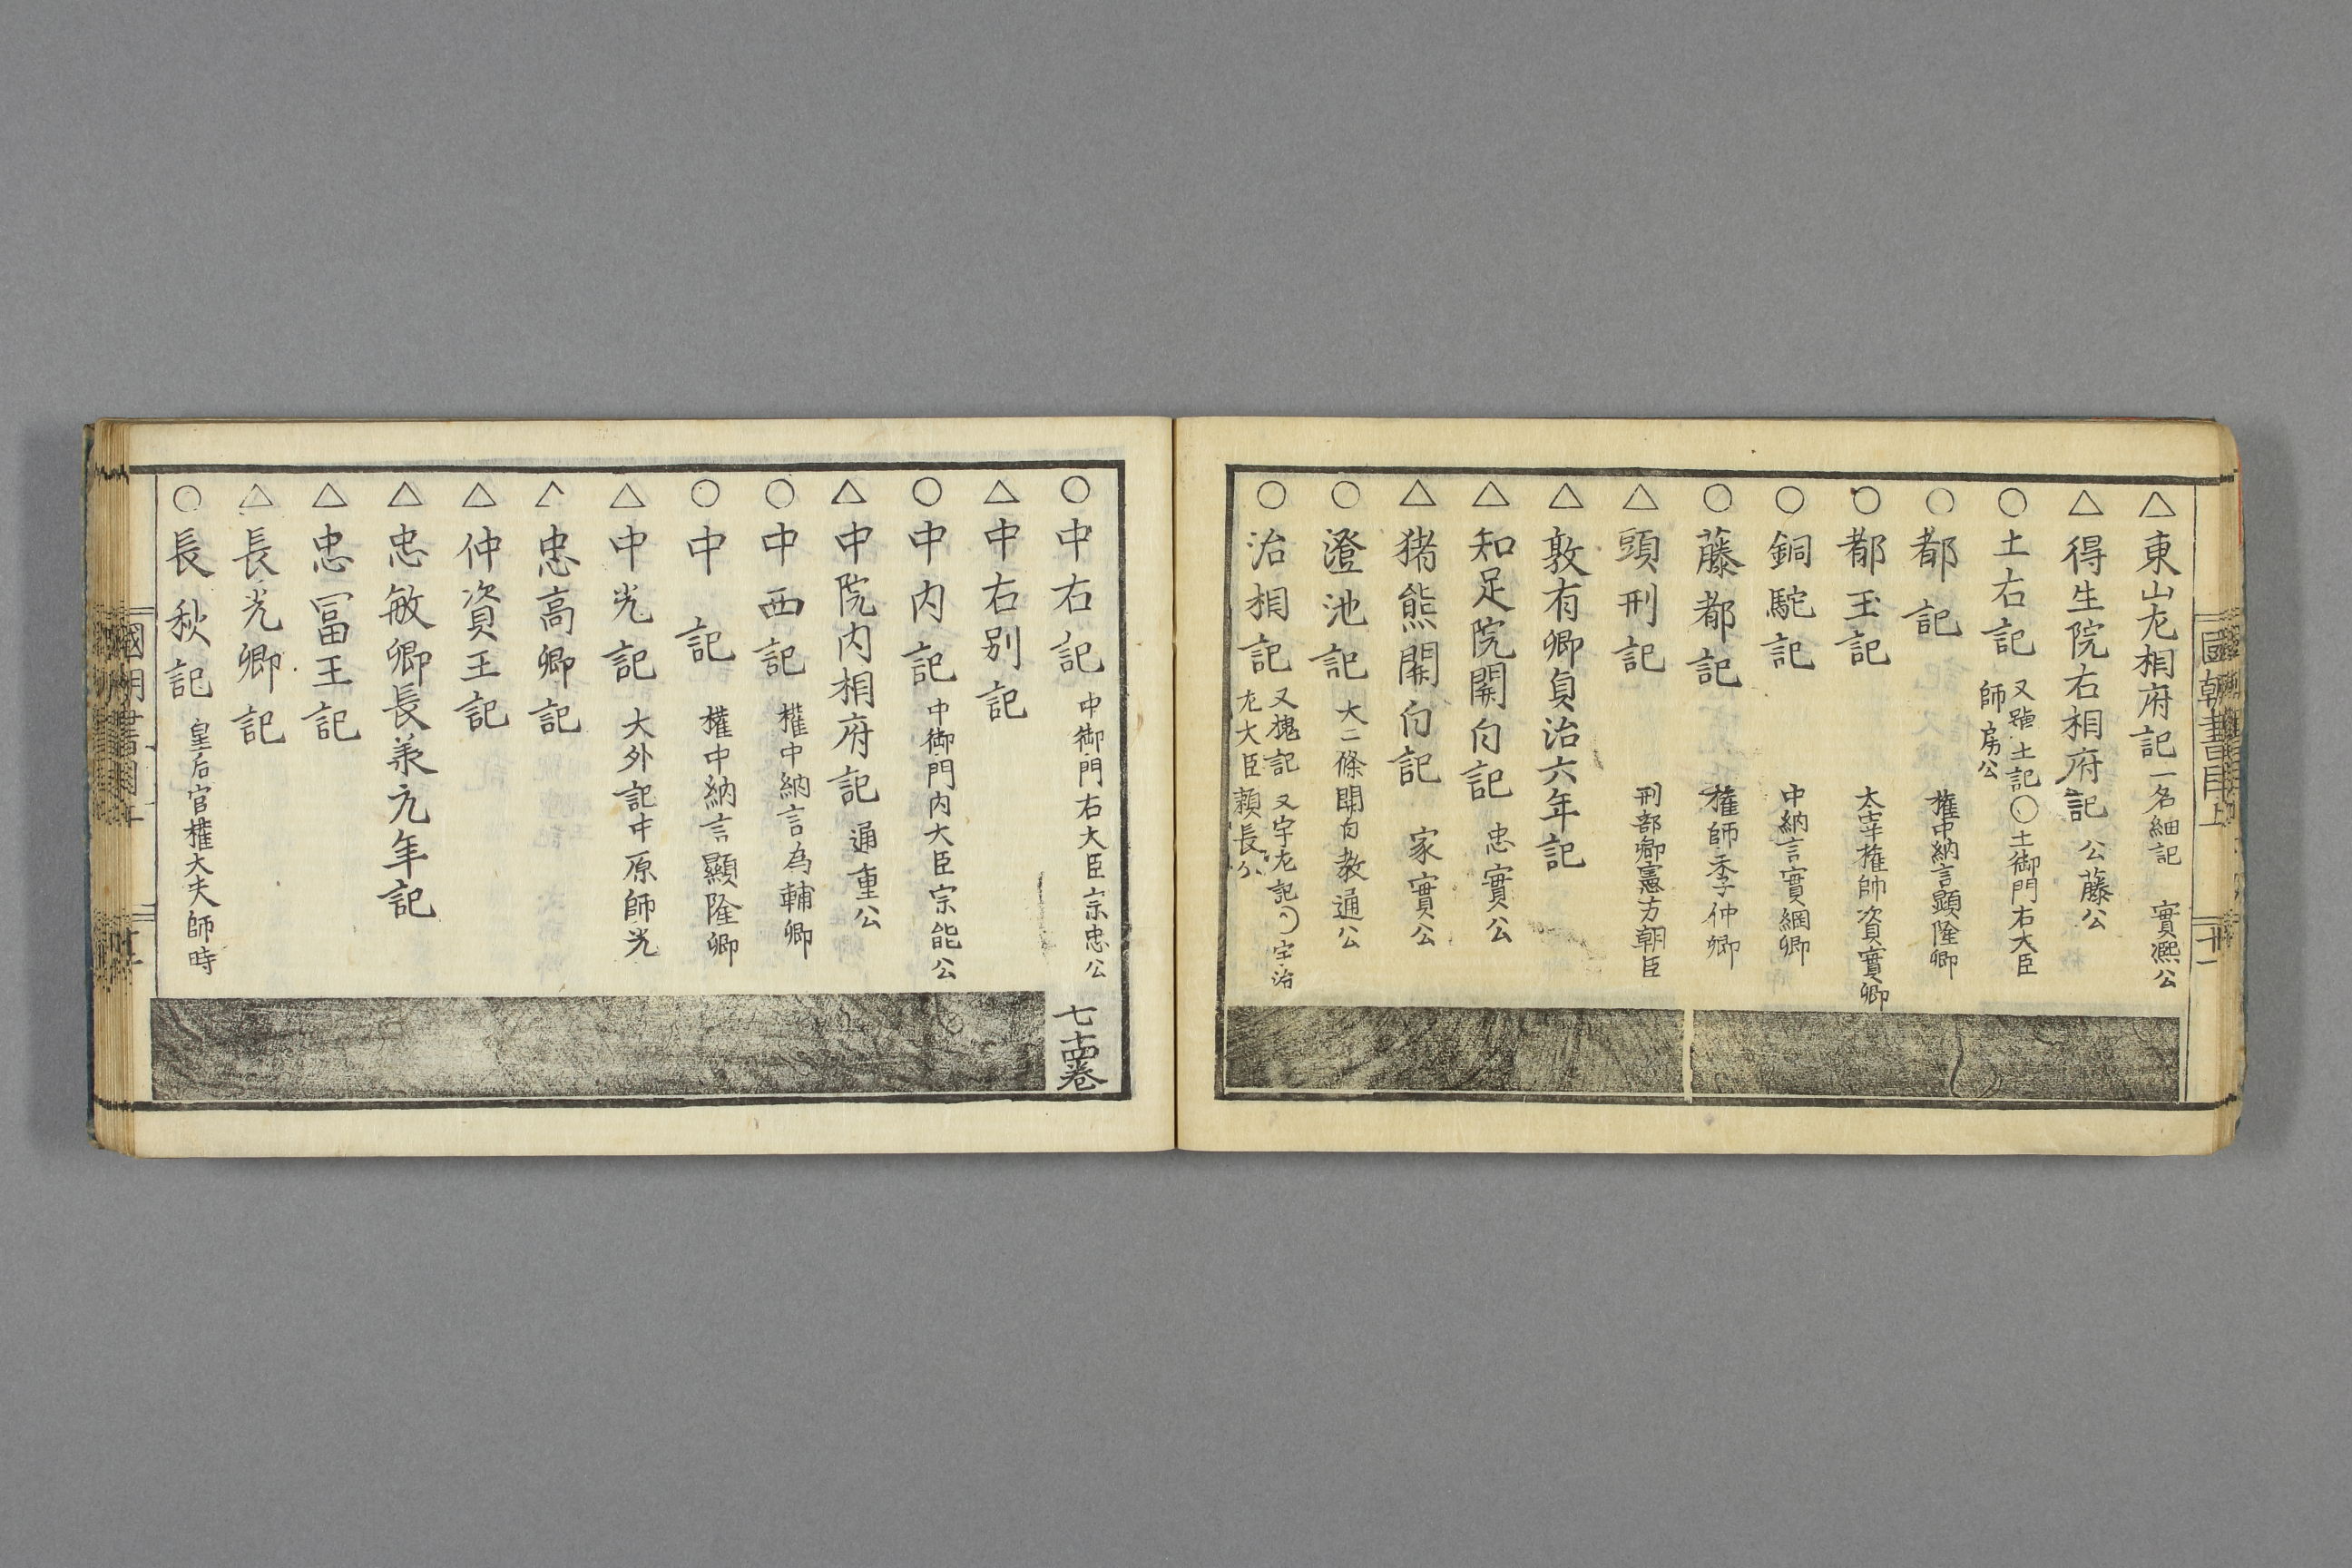 國朝書目上
廿一
△東山左相府記 一名細記 實凞公
△得生院右相府記 公藤公
○土右記 又土記○土御門右大臣
師房公
○都記 權中納言顯隆卿
○都玉記 太宰権帥資實卿
○銅駝記 中納言實綱卿
○藤都記 權師季仲卿
△頭刑記 刑部卿憲方朝臣
△敦有卿貞治六年記
△知足院關白記 忠實公
△猪熊關白記 家實公
○澄池記 大二條関白教通公
○治相記 又槐記 又宇左記○宇治
左大臣頼長公
○中右記 中御門右大臣宗忠公 七十四巻
△中右別記
○中内記 中御門内大臣宗能公
△中院内相府記 通重公
○中西記 權中納言為輔卿
○中記 權中納言顯隆卿
△中光記 大外記中原師光
△忠高卿記
△仲資王記
△忠敏卿長承元年記
△忠冨王記
△長光卿記
○長秋記 皇后宮權大夫師時